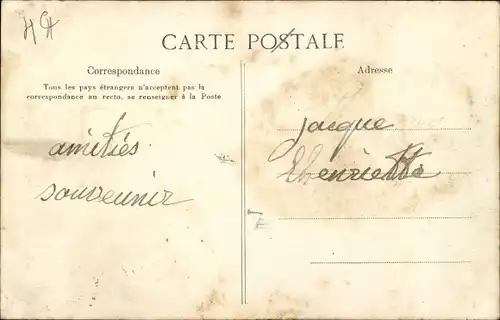 CARTE POSTALE
Correspondance
Tous les pays étrangers n'acceptent pas la
correspondance au recto, se renseigner à la Poste
amitiés
souvenir
Adresse
jacque
Henriette